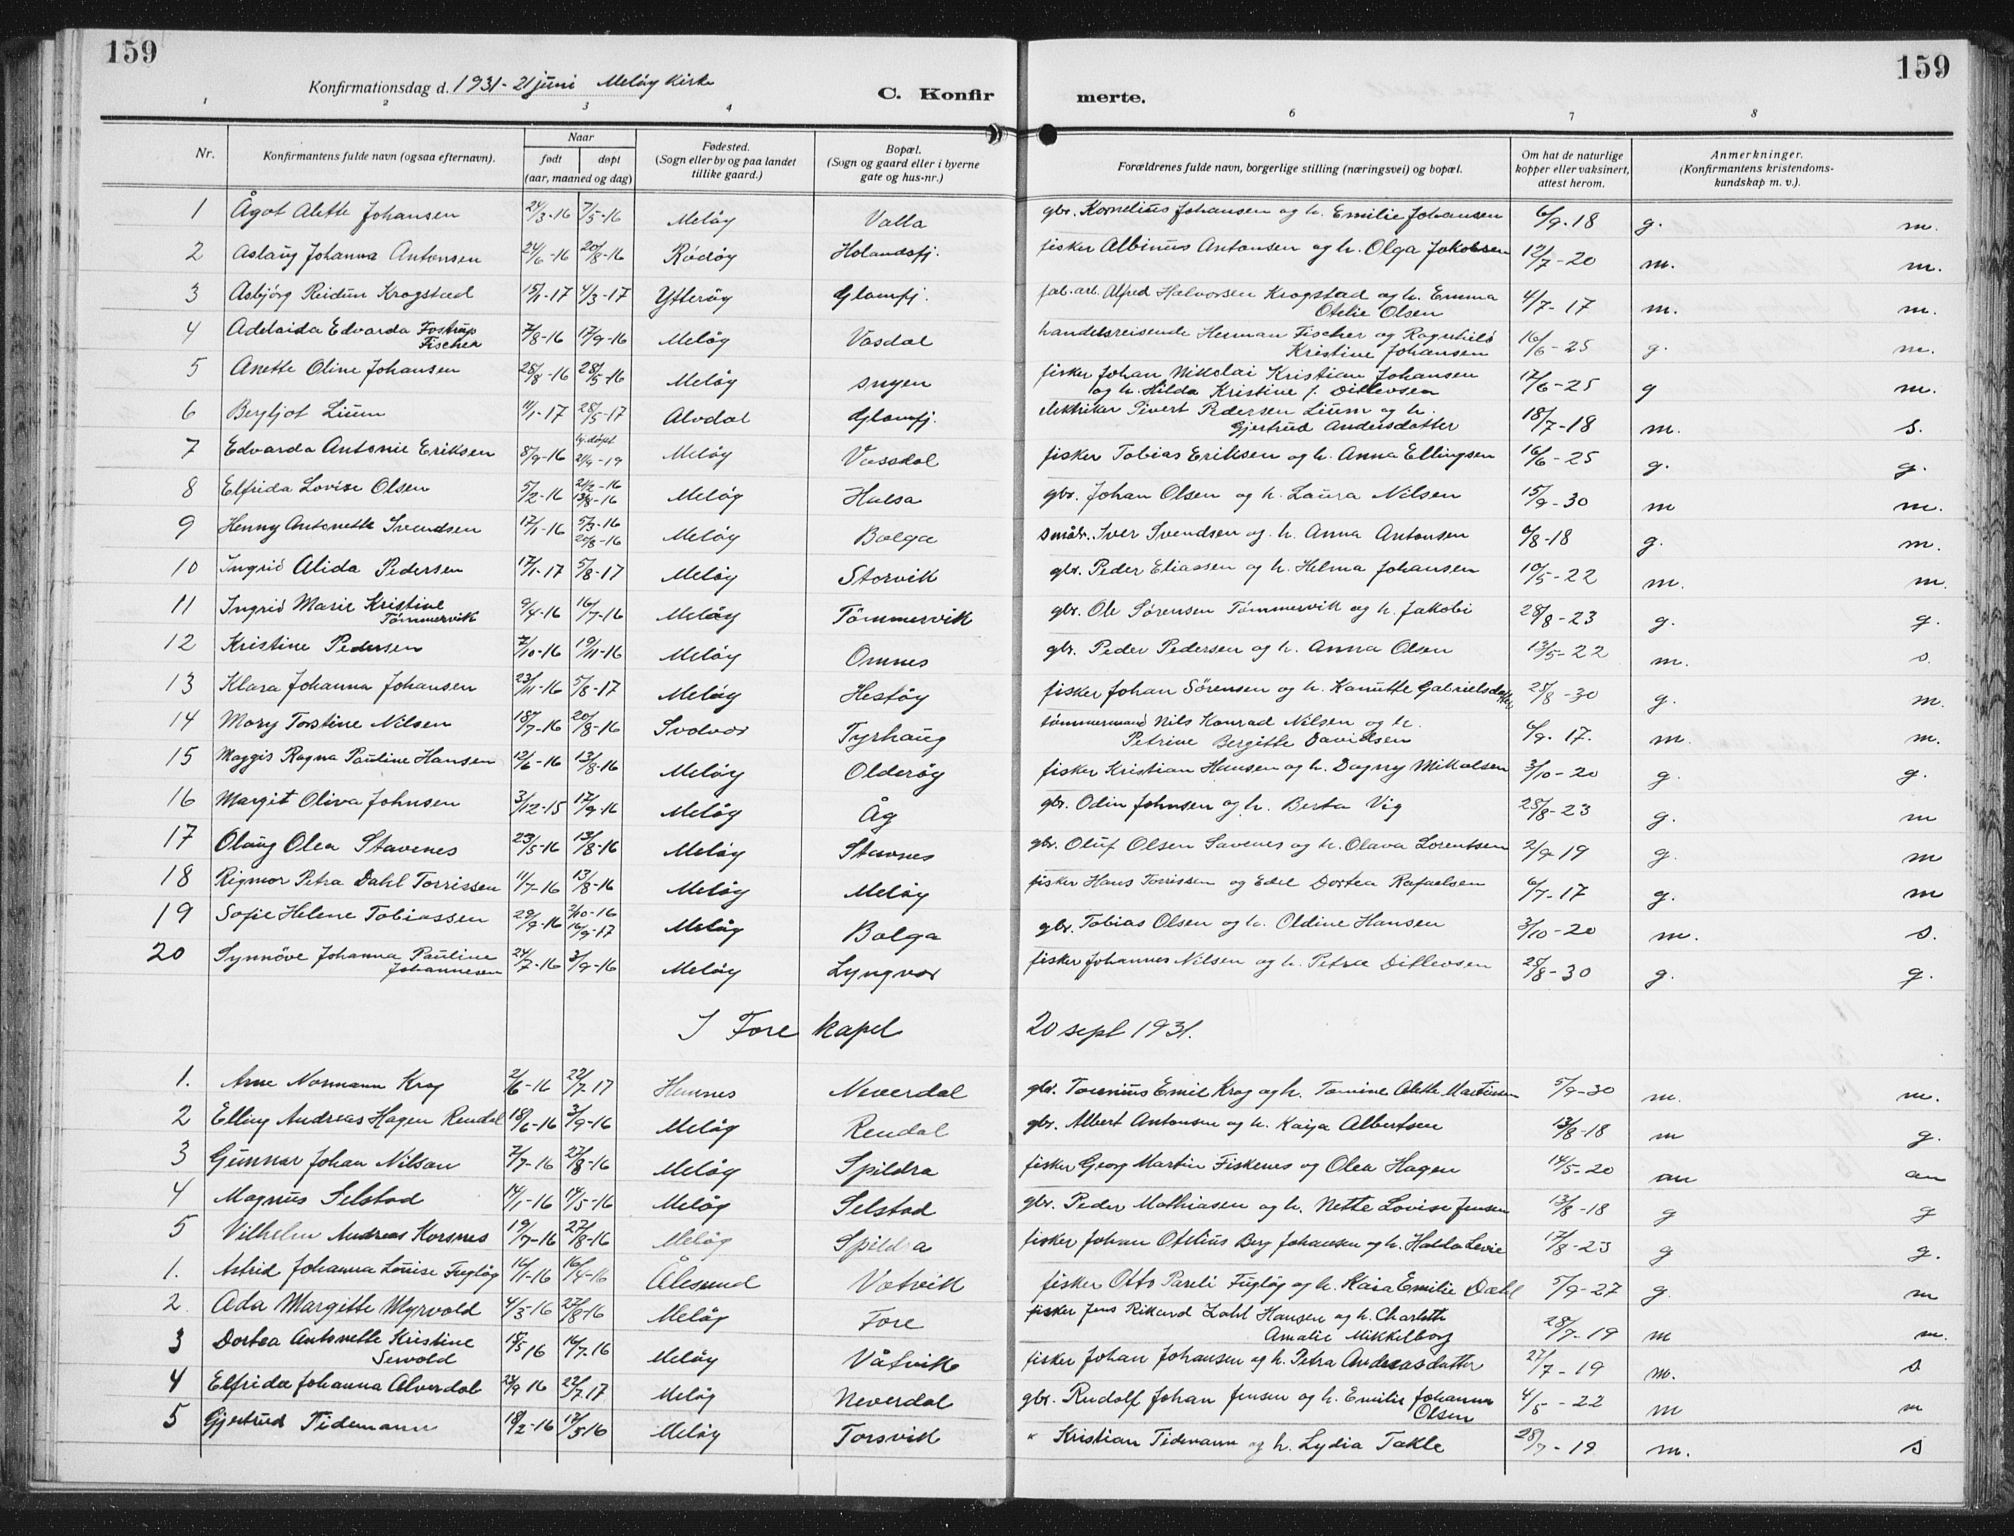 159
159
Konfirmationsdag d. 1931 - 21 juni Meløy Kirke
C. Konfirmerte.
1 2 3 4 6 7 8
Nr. Konfirmantens fulde navn (ogsaa efternavn). Naar født døpt (aar, maaned og dag) Fødested. (Sogn eller by og paa landet tillike gaard.) Bopæl. (Sogn og gaard eller i byerne gate og hus-nr.) Forældrenes fulde navn, borgerlige stilling (næringsvei) og bopæl. Om hat de naturlige kopper eller vaksinert, attest herom. Anmerkninger. (Konfirmantens kristendoms-kundskap m. v.).
1 Ågot Alette Johansen 24/3-16 7/5-16 Meløy Valla gbr. Kornelius Johansen og h. Emilie Johansen 6/9-18 g. m.
2 Aslaug Johanna Antonsen 24/6-16 20/8-16 Rødøy Holandsfj. fisker Albinus Antonsen og h. Olga Jakobsen 12/7-20 m. m.
3 Asbjørg Reidun Krogstad 15/1-17 4/3-17 Ytterøy Glomfj. fab.arb. Alfred Halvorsen Krogstad og h. Emma Otelie Olsen 4/7-17 m. m.
4 Adelaida Edvarda Fostrup Fischer 7/8-16 17/9-16 Meløy Vasdal handelsreisende Herman Fischer og Ragnhild Kristine Johansen 16/6-25 g. m.
5 Anette Oline Johansen 28/8-16 28/5-16 Meløy snyen fisker Johan Nikolai Kristian Johansen og h. Hilda Kristine f. Ditlevsen 17/6-25 g m.
6 Bergljot Lium 11/1-17 28/5-17 Alvdal Glomfj. elektriker Sivert Pedersen Lium og h. Gjertrud Andersdatter 18/7-18 m. s.
7 Edvarda Antonie Eriksen 8/9-16 hj.døpt 21/4-19 Meløy Vassdal fisker Tobias Eriksen og h. Anna Ellingsen 16/6-25 g. g.
8 Elfrida Lovise Olsen 5/2-16 21/2-16 13/8-16 Meløy Halsa gbr. Johan Olsen og h. Laura Nilsen 15/9-30 m m.
9 Henny Antonette Svendsen 17/1-16 5/3-16 20/8-16 Meløy Bolga småbr. Iver Svendsen og h. Anna Antonsen 6/8-18 g. m.
10 Ingrid Alida Pedersen 17/1-17 5/8-17 Meløy Storvik gbr. Peder Eliassen og h. Helma Johansen 10/5-22 m. m.
11 Ingrid Marie Kristine Tømmervik 9/4-16 16/7-16 Meløy Tømmervik gbr. Ole Sørensen Tømmervik og h. Jakobi 28/8-23 g. g.
12 Kristine Pedersen 7/10-16 19/11-16 Meløy Omnes gbr. Peder Pedersen og h. Anna Olsen 13/5-22 m. s.
13 Klara Johanna Johansen 23/11-16 5/8-17 Meløy Hestøy fisker Johan Sørensen og h. Kanutte Gabrielsdatter 25/8-30 g. m.
14 Mary Torstine Nilsen 18/7-16 20/8-16 Svolvær Tyrhaug tømmermand Nils Konrad Nilsen og h. Petrine Bergitte Davidsen 6/9-17. m. m.
15 Maggis Ragna Pauline Hansen 12/6-16 13/8-16 Meløy Olderøy fisker Kristian Hansen og h. Dagny Mikalsen 3/10-20 g. g.
16 Margit Oliva Johnsen 3/12-15 17/9-16 Meløy Åg gbr. Odin Johnsen og h. Berta Vig 28/8-23 g. m
17 Olaug Olea Stavenes 23/5-16 13/8-16 Meløy Stavnes gbr. Oluf Olsen Savenes og h. Olava Lorentsen 2/9-19 g. m
18 Rigmor Petra Dahl Torrissen 11/7-16 13/8-16 Meløy Meløy fisker Hans Torrissen og Edel Dortea Rafaelsen 6/7-17 g. m
19 Sofie Helene Tobiassen 29/9-16 2/10-16 16/9-17 Meløy Bolga gbr. Tobias Olsen og h. Oldine Hansen 3/10-20 m. s.
20 Synnöve Johanna Pauline Johannesen 24/7-16 3/9-16 Meløy Lyngvær fisker Johannes Nilsen og h. Petra Ditlevsen 25/8-30 g. g.
I Fore kapel 20 sept 1931.
1. Arne Normann Krog 2/6-16 22/7-17 Hemnes Neverdal gbr. Torenius Emil Krog og h. Tomine Alette Martinsen 5/9-30 m. m.
2 Elling Andreas Hagen Rendal 18/6-16 3/9-16 Meløy Rendal gbr. Albert Antonsen og h. Kaija Albertsen 13/8-18 m g.
3 Gunnar Johan Nilsen 7/7-16 27/8-16 Meløy Spildra fisker Georg Martin Fiskenes og Olea Hagen 14/5-20 m m
4 Magnus Selstad 14/1-16 14/5-16 Meløy Selstad gbr. Peder Mathiasen og h. Nette Lovise Jensen 13/8-18 g g
5 Vilhelm Andreas Korsnes 19/7-16 27/8-16 Meløy Spildra fisker Johan Otelius Berg Johansen og h. Halda Levie 17/8-23 g g.
1. Astrid Johanna Louise Fugløy 14/1-16 16/4-16 Ålesund Vatvik fisker Otto Pareli Fugløy og h. Kaia Emilie Dahl 5/9-27 g. m
2. Ada Margitte Myrvold 4/3-16 27/8-16 Meløy Fore fisker Jens Rikard Zahl Hansen og h. Charlotte Amalie Mikkelborg 28/7-19 m m.
3 Dortea Antonette Kristine Sevold 15/5-16 14/7-16 Meløy Våtvik fisker Johan Johansen og h. Petra Andreasdatter 27/7-19 m. s
4 Elfrida Johanna Alverdal 23/9-16 22/7-17 Meløy Neverdal gbr. Rudolf Johan Jensen og h. Emilie Johanna Olsen 4/5-22 m m
5 Gjertrud Tidemann 18/2-16 17/5-16 Meløy Torsvik " Kristian Tidemann og h. Lydia Takle 28/7-19 m. s